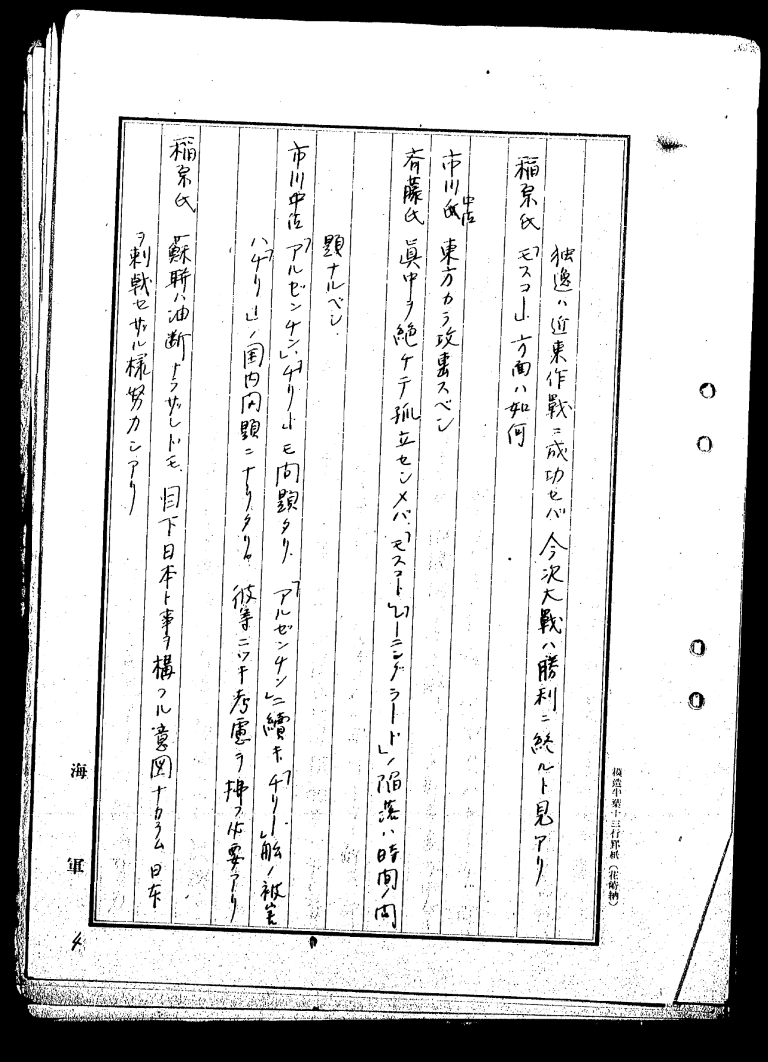 独逸ハ近東作戰ニ成功セバ今次大戰ハ勝利ニ終ルト見アリ
稲原氏 「モスコー」方面ハ如何
市川中佐 東方カラ攻裏スベシ
斉藤氏 眞中ヲ絶ケテ孤立センメバ「モスコー」「レーニングラード」ノ陥落ハ時間ノ問
題ナルベシ
市川中佐 「アルゼンチン」「チリー」モ問題タリ 「アルゼンチン」ニ續キ「チリー」船ノ被害
ハ「チリー」ノ国内問題ニナリタリ。彼等ニツキ考慮ヲ拂フ必要アリ
稲原氏 蘇聯ハ油断ナラザレドモ、目下日本ト事ヲ構フル意図ナカラム 日本
ヲ刺戟セザル様努力シアリ
模造半葉十三行罫紙
海軍
4